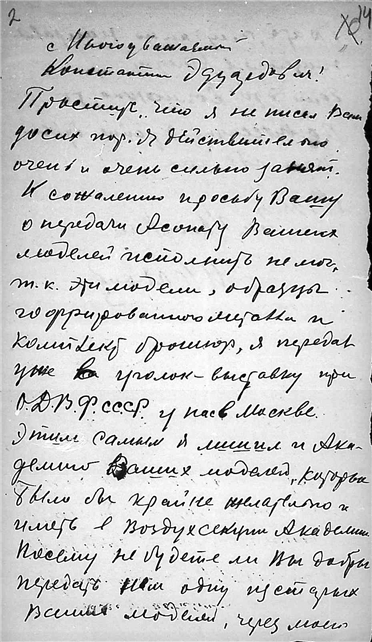 2
14
с Многоуважаемый
Константин Эдуардович!
Простите, что я не писал Вам
до сих пор. Я действительно
очень и очень сильно занят.
К сожалению просьбу Вашу
о передачи Асонову Ваших
моделей исполнить не мог,
т.к. эти модели, образцы
гофрированного металла и
комплект брошюр, я передал
уже в уголок-выставку при
О.Д.В.Ф. СССР у нас в Москве.
Этим самым я лишил и Ака-
демию Ваших моделей, которые
было бы крайне желательно и
иметь в Воздухсекции Академии.
Посему не будете ли Вы добры
передать нам одну из старых
Ваших моделей, через моего